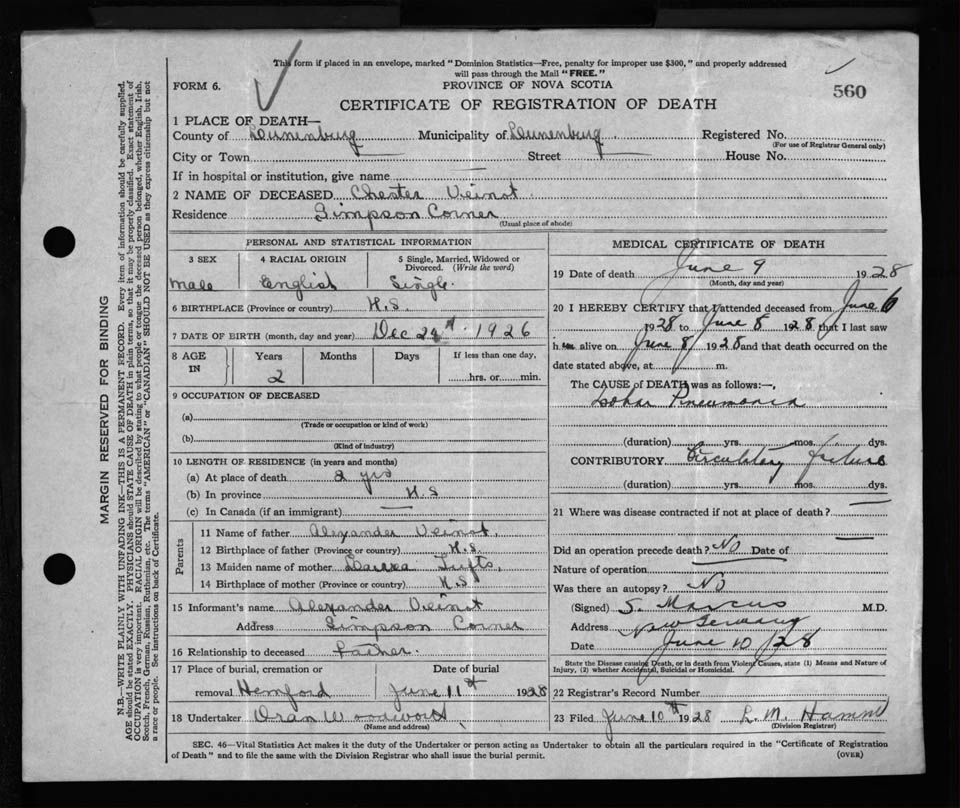 This form if placed in an envelope, marked "Dominion Statistics—Free, penalty for improper use $300," and properly addressed
will pass through the Mail "FREE."
FORM 6.
PROVINCE OF NOVA SCOTIA
560
CERTIFICATE OF REGISTRATION OF DEATH
1 PLACE OF DEATH—
County of Lunenburg Municipality of Lunenburg Registered No.
(For use of Registrar General only)
City or Town Street House No.
If in hospital or institution, give name
2 NAME OF DECEASED Chester Veinot
Residence Simpson Corner
(Usual place of abode)
PERSONAL AND STATISTICAL INFORMATION
3 SEX 4 RACIAL ORIGIN 5 Single, Married, Widowed or Divorced. (Write the word)
Male English Single
6 BIRTHPLACE (Province or country) N.S.
7 DATE OF BIRTH (month, day and year) Dec 1926
8 AGE IN Years Months Days If less than one day,
2 hrs. or min.
9 OCCUPATION OF DECEASED
(a)
(Trade or occupation or kind of work)
(b)
(Kind of industry)
10 LENGTH OF RESIDENCE (in years and months)
(a) At place of death 2 yrs
(b) In province N.S
(c) In Canada (if an immigrant)
Parents
11 Name of father Alexander Veinot.
12 Birthplace of father (Province or country) N.S.
13 Maiden name of mother
14 Birthplace of mother (Province or country) N.S
15 Informant's name Alexander Veinot
Address Simpson Corner
16 Relationship to deceased Father.
17 Place of burial, cremation or Date of burial
removal Hemford June 11th 1928
18 Undertaker Oran
(Name and address)
MEDICAL CERTIFICATE OF DEATH
19 Date of death June 9 1928
(Month, day and year)
20 I HEREBY CERTIFY that I attended deceased from June 6
1928 to June 8 1928 that I last saw
h alive on June 8 1928 and that death occurred on
date stated above, at m.
The CAUSE of DEATH was as follows:—
Lobar Pneumonia
(duration) yrs. mos. dys.
CONTRIBUTORY Circulatory failure
(duration) yrs. mos. dys.
21 Where was disease contracted if not at place of death?
Did an operation precede death? No Date of
Nature of operation
Was there an autopsy? No
(Signed) S. Marcus M.D.
Address New Germany
Date June 10/28
State the Disease causing Death, or in death from Violent Causes, state (1) Means and Nature of
Injury, (2) whether Accidental, Suicidal or Homicidal.
22 Registrar's Record Number
23 Filed June 10th 1928 L. M.
(Division Registrar)
SEC. 46—Vital Statistics Act makes it the duty of the Undertaker or person acting as Undertaker to obtain all the particulars required in the "Certificate of Registration
of Death" and to file the same with the Division Registrar who shall issue the burial permit. (OVER)
MARGIN RESERVED FOR BINDING
N.B.—WRITE PLAINLY WITH UNFADING INK—THIS IS A PERMANENT RECORD. Every item of information should be carefully supplied.
AGE should be stated EXACTLY. PHYSICIANS should STATE CAUSE OF DEATH in plain terms, so that it may be properly classified. Exact statement of
OCCUPATION is very important. RACIAL ORIGIN will be described by stating to what people or tongue the deceased person belonged, whether English, Irish,
Scotch, French, German, Russian, Ruthenian, etc. The terms "AMERICAN" or "CANADIAN" SHOULD NOT BE USED as they express citizenship but not
a race or people. See instructions on back of Certificate.